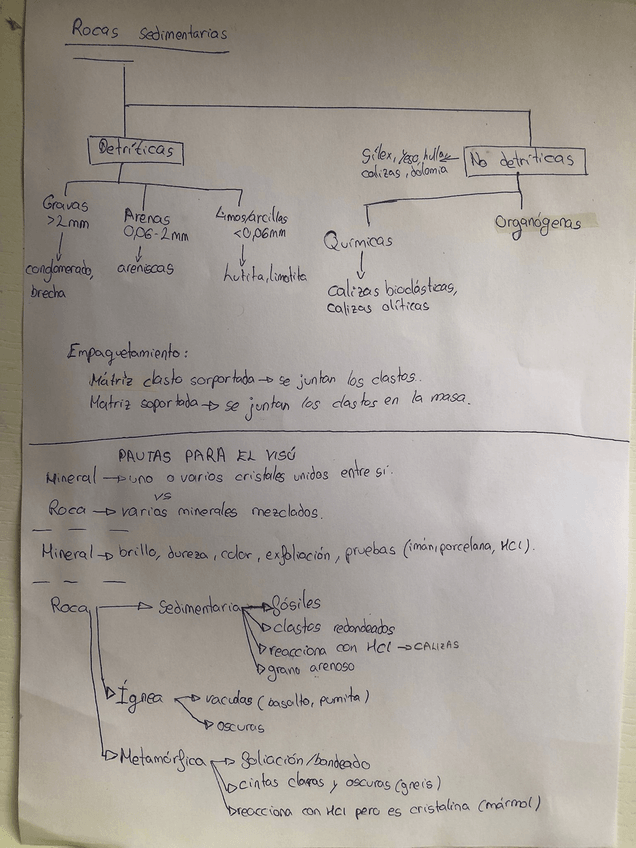 Rocas sedimentarias
Detríticas
Sílex, Yeso, hulla
calizas, dolomia
No detríticas
Gravas
>2mm
Arenas
0,06-2mm
Limos/arcillas
<0,06mm
Químicas
Organógenas
conglomerado,
brecha
areniscas
lutita, limolita
calizas bioclásticas,
calizas olíticas
Empaquetamiento:
Mátriz clasto sorportada → se juntan los clastos.
Matriz soportada → se juntan los clastos en la masa.
PAUTAS PARA EL VISÚ
Mineral → uno o varios cristales unidos entre sí.
vs
Roca → varios minerales mezclados.
Mineral → brillo, dureza, color, exfoliación, pruebas (imán, porcelana, HCl).
Roca → Sedimentaria → fósiles
→ clastos redondeados
→ reacciona con HCl → CALIZAS
→ grano arenoso
→ Ígnea → vacuolas (basalto, pumita)
→ oscuras
→ Metamórfica → foliación/bandeado
→ cintas claras y oscuras (gneis)
→ reacciona con HCl pero es cristalina (mármol)